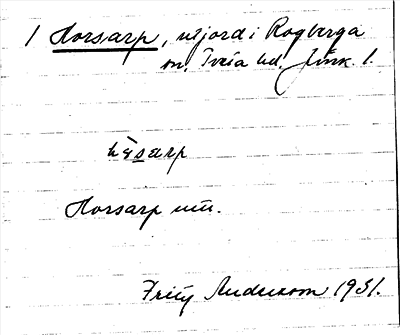 1 Horsarp, utjord i Rogberga
sn, Tveta hd. Jönk. l.
Horsarp utj.
Fritz Andersson 1931.